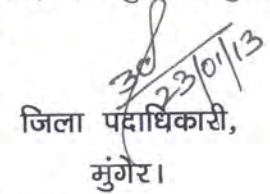 ह0
23/01/13
जिला पदाधिकारी,
मुंगेर।